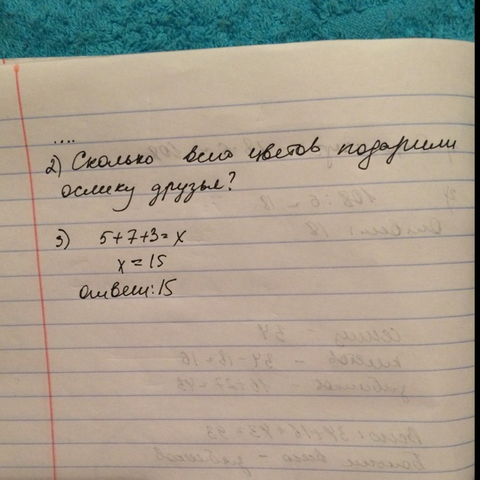 ....
2) Сколько всего цветов подарили
ослику друзья?
3) 5+7+3=x
x=15
ответ:15